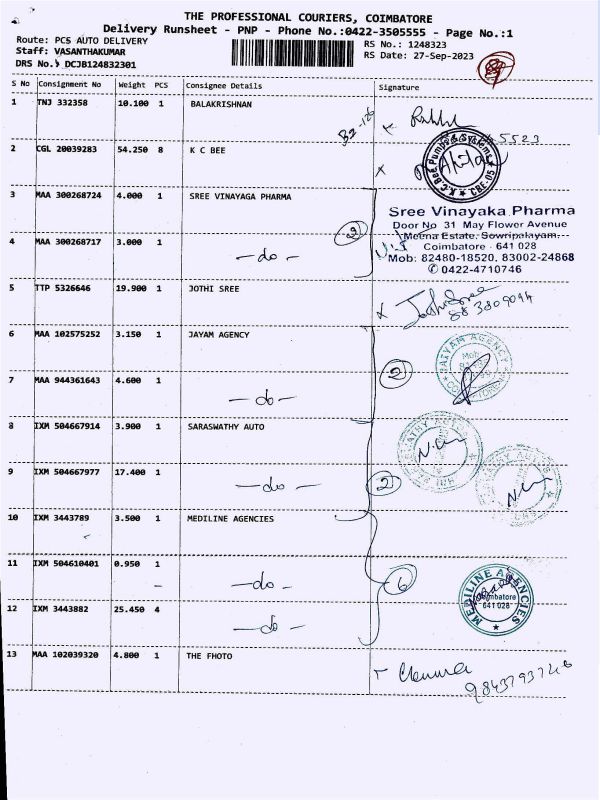 THE PROFESSIONAL COURIERS, COIMBATORE
Delivery Runsheet - PNP - Phone No.:0422-3505555 - Page No.:1
Route: PCS AUTO DELIVERY
RS No.: 1248323
Staff: VASANTHAKUMAR
RS Date: 27-Sep-2023
DRS No.: DCJB124832301
S No Consignment No Weight PCS Consignee Details Signature
1 TNJ 332358 10.100 1 BALAKRISHNAN
2 CGL 20039283 54.250 8 K C BEE
K.C.BEE Pumps & Systems CBE-05
3 MAA 300268724 4.000 1 SREE VINAYAGA PHARMA
Sree Vinayaka Pharma
Door No 31 May Flower Avenue
Meena Estate, Sowripalayam,
Coimbatore - 641 028
Mob: 82480-18520, 83002-24868
✆ 0422-4710746
4 MAA 300268717 3.000 1 -do-
3
5 TTP 5326646 19.900 1 JOTHI SREE
Jothi Sree
6 MAA 102575252 3.150 1 JAYAM AGENCY
7 MAA 944361643 4.600 1 -do-
2
8 IXM 504667914 3.900 1 SARASWATHY AUTO
9 IXM 504667977 17.400 1 -do-
2
10 IXM 3443789 3.500 1 MEDILINE AGENCIES
11 IXM 504610401 0.950 1 -do-
6
MEDILINE AGENCIES
Coimbatore
641 028
12 IXM 3443882 25.450 4 -do-
13 MAA 102039320 4.800 1 THE FHOTO